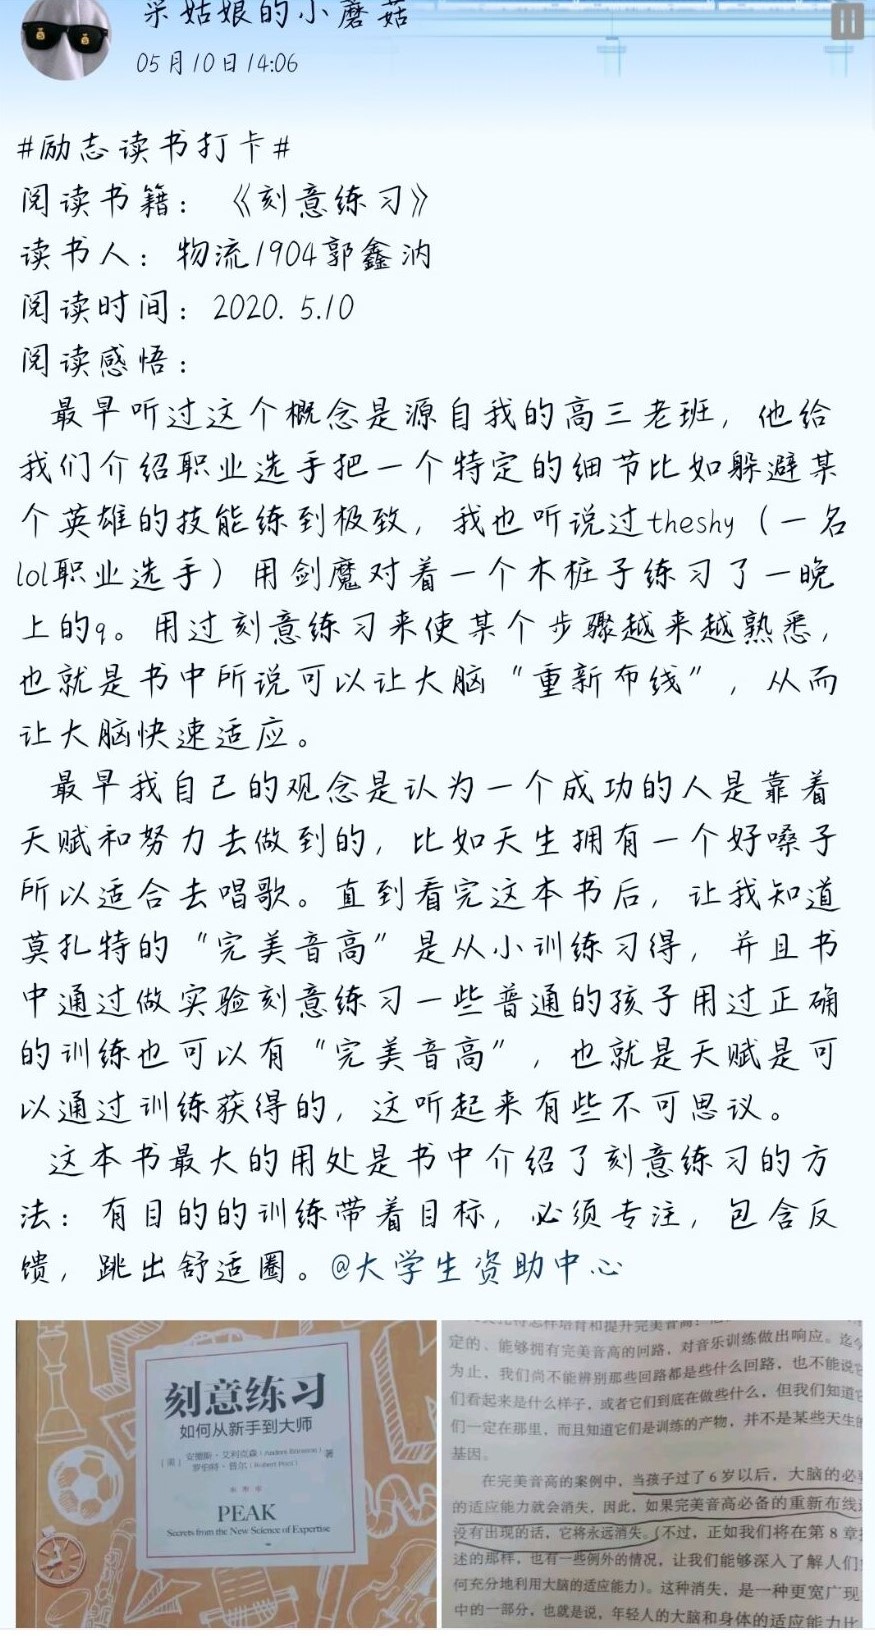 采姑娘的小蘑菇
05月10日 14:06
#励志读书打卡#
阅读书籍：《刻意练习》
读书人：物流1904郭鑫汭
阅读时间：2020.5.10
阅读感悟：
最早听过这个概念是源自我的高三老班，他给
我们介绍职业选手把一个特定的细节比如躲避某
个英雄的技能练到极致，我也听说过theshy（一名
lol职业选手）用剑魔对着一个木桩子练习了一晚
上的q。用过刻意练习来使某个步骤越来越熟悉，
也就是书中所说可以让大脑“重新布线”，从而
让大脑快速适应。
最早我自己的观念是认为一个成功的人是靠着
天赋和努力去做到的，比如天生拥有一个好嗓子
所以适合去唱歌。直到看完这本书后，让我知道
莫扎特的“完美音高”是从小训练习得，并且书
中通过做实验刻意练习一些普通的孩子用过正确
的训练也可以有“完美音高”，也就是天赋是可
以通过训练获得的，这听起来有些不可思议。
这本书最大的用处是书中介绍了刻意练习的方
法：有目的的训练带着目标，必须专注，包含反
馈，跳出舒适圈。@大学生资助中心
刻意练习
如何从新手到大师
[美] 安德斯·艾利克森（Anders Ericsson） 著
罗伯特·普尔（Robert Pool）
PEAK
Secrets from the New Science of Expertise
定的、能够拥有完美音高的回路，对音乐训练做出响应。迄今
为止，我们尚不能辨别那些回路都是些什么回路，也不能说它
们看起来是什么样子，或者它们到底在做些什么，但我们知道它
们一定在那里，而且知道它们是训练的产物，并不是某些天生的
基因。
在完美音高的案例中，当孩子过了6岁以后，大脑的必要
的适应能力就会消失，因此，如果完美音高必备的重新布线
没有出现的话，它将永远消失。（不过，正如我们将在第8章
述的那样，也有一些例外的情况，让我们能够深入了解人们
何充分地利用大脑的适应能力）。这种消失，是一种更宽广现
中的一部分，也就是说，年轻人的大脑和身体的适应能力比